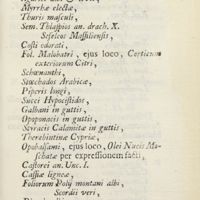 Myrrhæ electæ,
Thuris masculi,
Sem. Thlaspios an. drach. X.
Seseleos Massiliensis,
Costi odorati,
Fol. Malabatri, ejus loco, Corticum
exteriorum Citri,
Schœnanthi,
Stœchados Arabicæ,
Piperis longi,
Succi Hypocistidos,
Galbani in guttis,
Opoponacis in guttis,
Styracis Calamitæ in guttis,
Therebintinæ Cypriæ,
Opobalsami, ejus loco, Olei Nucis Mo-
schatæ per expressionem facti,
Castorei an. Unc. I.
Cassiæ ligneæ,
Foliorum Polij montani albi,
Scordii veri,